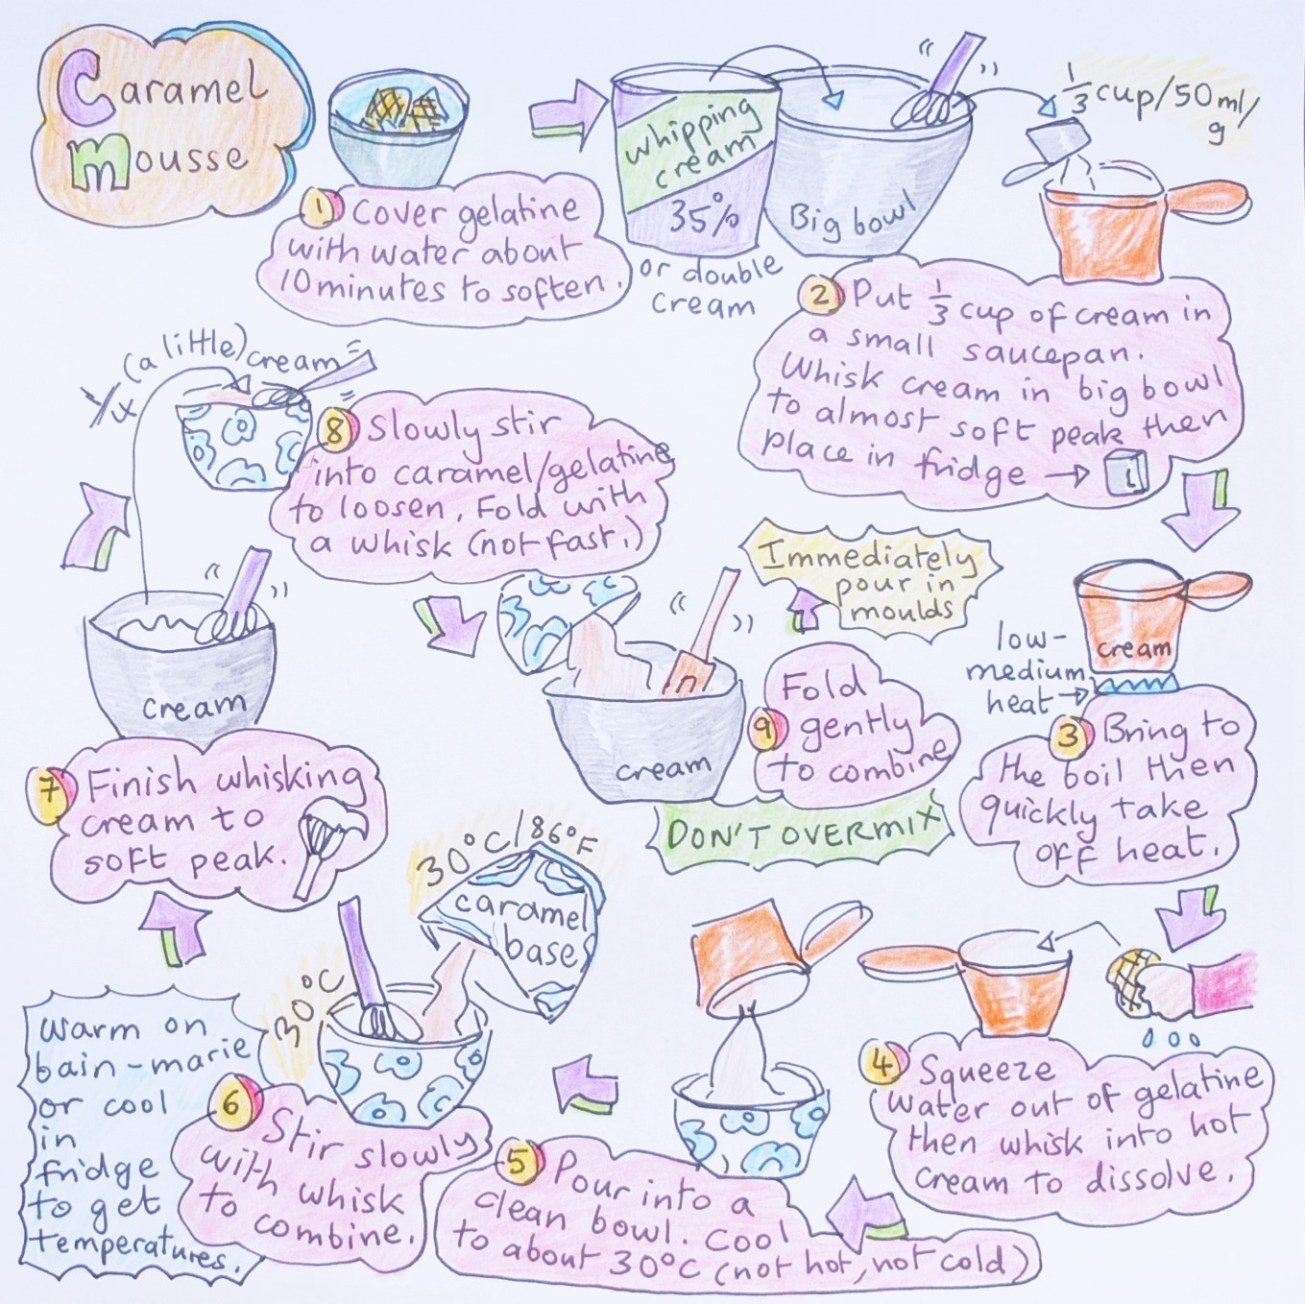 Caramel
Mousse
1 Cover gelatine
with water about
10 minutes to soften.
whipping
cream
35%
or double
cream
Big bowl
1/3 cup/50ml/
g
2 Put 1/3 cup of cream in
a small saucepan.
Whisk cream in big bowl
to almost soft peak then
place in fridge →
low-
medium
heat →
cream
3 Bring to
the boil then
quickly take
off heat.
4 Squeeze
water out of gelatine
then whisk into hot
cream to dissolve.
5 Pour into a
clean bowl. Cool
to about 30°C (not hot, not cold)
30°C/86°F
caramel
base
30°C
6 Stir slowly
with whisk
to combine.
Warm on
bain-marie
or cool
in
fridge
to get
temperatures.
cream
7 Finish whisking
cream to
soft peak.
1/4 (a little) cream
8 Slowly stir
into caramel/gelatine
to loosen. Fold with
a whisk (not fast.)
cream
9 Fold
gently
to combine
DON'T OVERMIX
Immediately
pour in
moulds